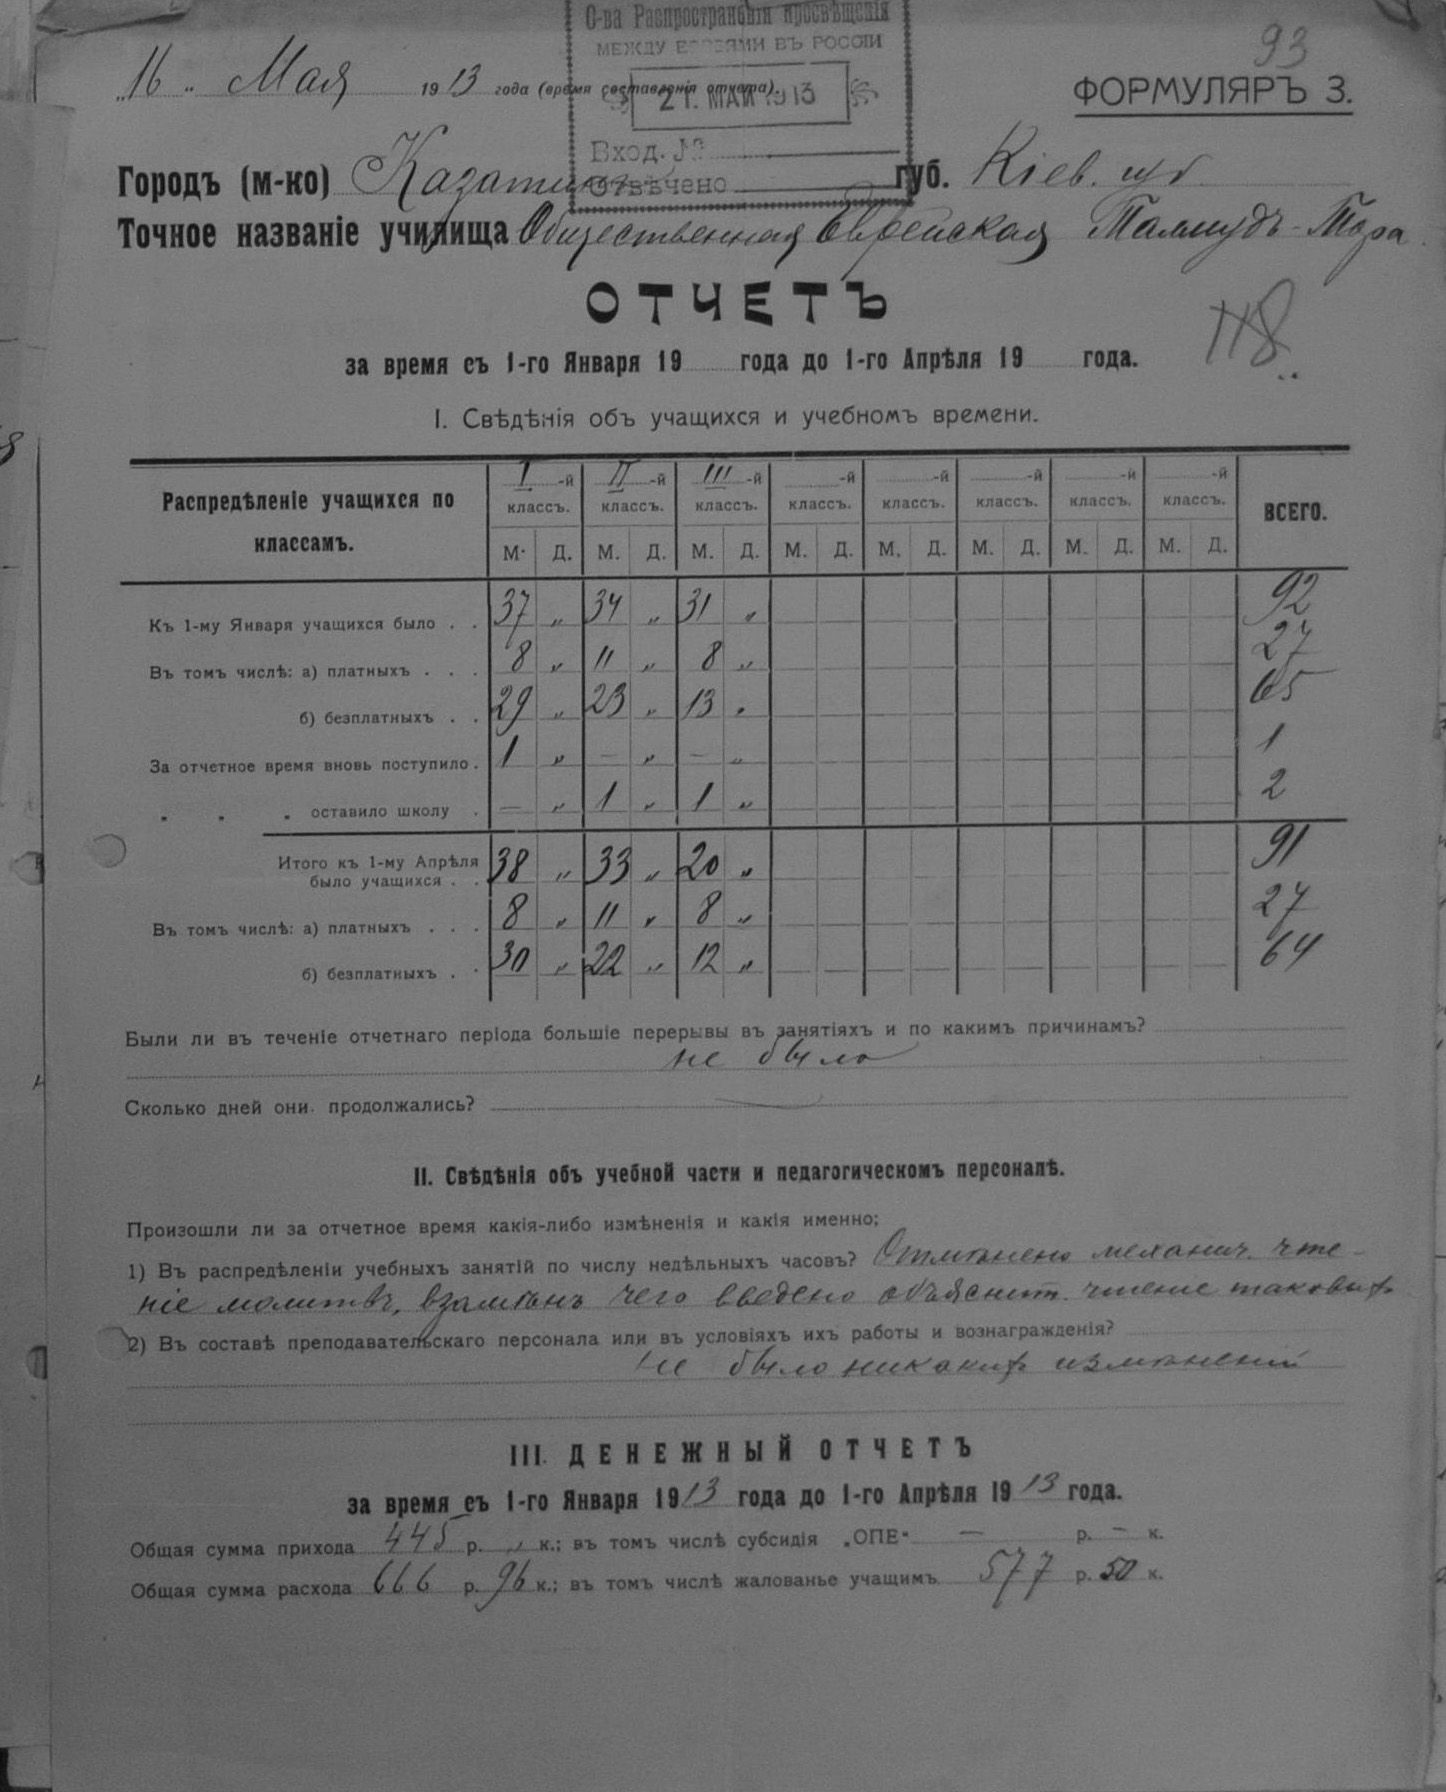 О-ва Распространенія просвѣщенія
МЕЖДУ ЕВРЕЯМИ ВЪ РОССІИ
21. МАЙ 1913
Вход. №
Отвѣчено
93
„16„ Мая 1913 года (время составленія отчета).
ФОРМУЛЯРЪ 3.
Городъ (м-ко) Казатинъ губ. Кіев. губ.
Точное названіе училища Общественная Еврейская Талмудъ-Тора
ОТЧЕТЪ
118
за время съ 1-го Января 19 года до 1-го Апрѣля 19 года.
I. Свѣдѣнія объ учащихся и учебномъ времени.
Распредѣленіе учащихся по классамъ. I-й классъ. II-й классъ. III-й классъ. -й классъ. -й классъ. -й классъ. -й классъ. -й классъ. ВСЕГО.
М. Д. М. Д. М. Д. М. Д. М. Д. М. Д. М. Д. М. Д.
Къ 1-му Января учащихся было . . 37 „ 34 „ 31 „ 92
Въ томъ числѣ: а) платныхъ . . . 8 „ 11 „ 8 „ 27
б) безплатныхъ . . 29 „ 23 „ 13 „ 65
За отчетное время вновь поступило . 1 „ — „ — „ 1
„ „ „ оставило школу . — „ 1 „ 1 „ 2
Итого къ 1-му Апрѣля
было учащихся . . 38 „ 33 „ 20 „ 91
Въ томъ числѣ: а) платныхъ . . . 8 „ 11 „ 8 „ 27
б) безплатныхъ . . 30 „ 22 „ 12 „ 64
Были ли въ теченіе отчетнаго періода большіе перерывы въ занятіяхъ и по какимъ причинамъ?
не было
Сколько дней они продолжались? —
II. Свѣдѣнія объ учебной части и педагогическомъ персоналѣ.
Произошли ли за отчетное время какія-либо измѣненія и какія именно;
1) Въ распредѣленіи учебныхъ занятій по числу недѣльныхъ часовъ? Отмѣнено механич. чте-
ніе молитвъ, взамѣнъ чего введено объяснит. чтеніе таковыхъ
2) Въ составѣ преподавательскаго персонала или въ условіяхъ ихъ работы и вознагражденія?
Не было никакихъ измѣненій
III. ДЕНЕЖНЫЙ ОТЧЕТЪ
за время съ 1-го Января 1913 года до 1-го Апрѣля 1913 года.
Общая сумма прихода 445 р. „ к.; въ томъ числѣ субсидія „ОПЕ“ — р. — к.
Общая сумма расхода 666 р. 96 к.; въ томъ числѣ жалованье учащимъ 577 р. 50 к.